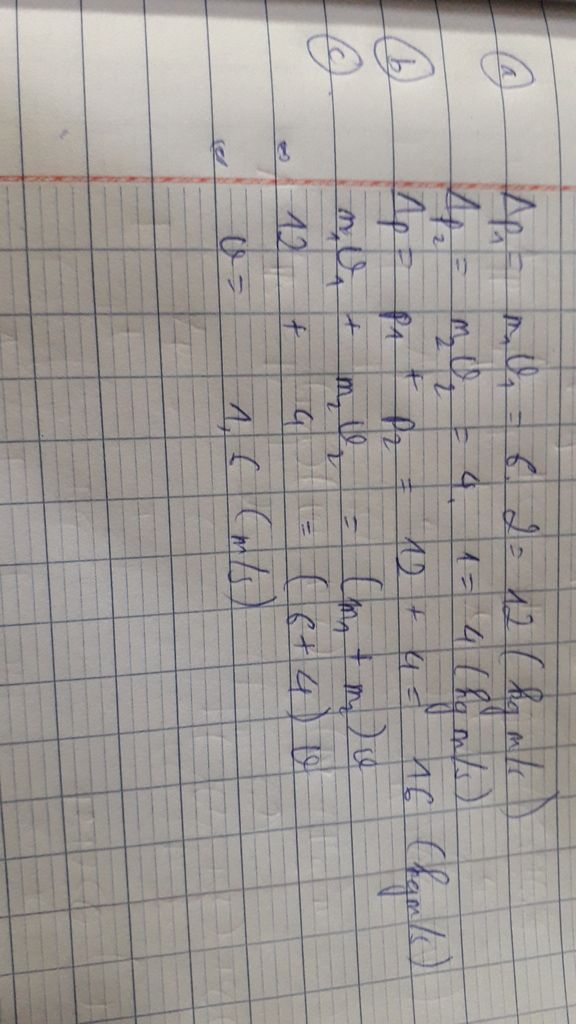 a) Δp₁ = m₁v₁ = 6. 2 = 12 (kgm/s)
Δp₂ = m₂v₂ = 4. 1 = 4 (kgm/s)
b) Δp = p₁ + p₂ = 12 + 4 = 16 (kgm/s)
c) m₁v₁ + m₂v₂ = (m₁ + m₂)v
⇔ 12 + 4 = (6 + 4)v
⇔ v = 1,6 (m/s)